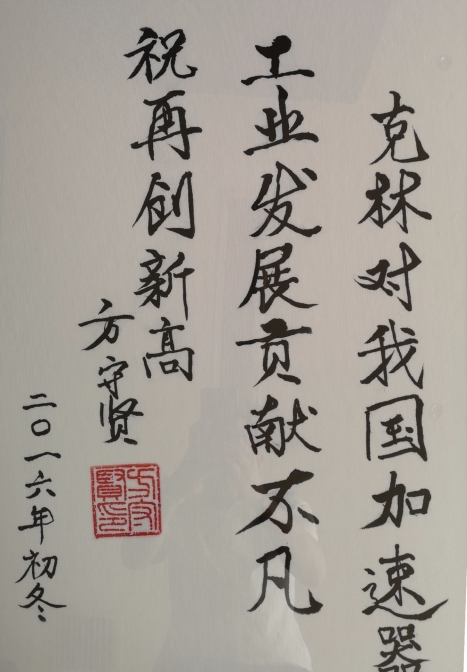 克林对我国加速器
工业发展贡献不凡
祝再创新高
方守贤
方守
賢印
二〇一六年初冬